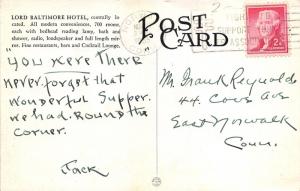 LORD BALTIMORE HOTEL, centrally lo-
cated. All modern conveniences, 700 rooms,
each with bedhead reading lamp, bath and
shower, radio, loudspeaker and full length mir-
ror. Fine restaurants, bars and Cocktail Lounge.
POST
CARD
2¢
"You were There
never forget that
wonderful Supper.
we had. Round the
Corner.
Jack
Mr. Frank Reynolds
44. Cove Ave
East Norwalk
Conn.